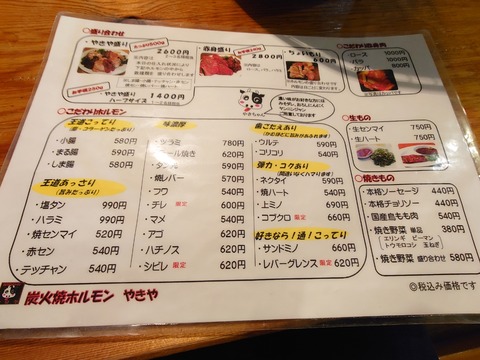 ○盛り合わせ
・やきや盛り
たっぷり500g
2600円
・やきや盛り
ハーフサイズ
1400円
・赤身盛り
2800円
・ちょいもり
600円
やきちゃん
○こだわり赤身肉
・ロース 1000円
・バラ 1000円
800円
○こだわりホルモン
王道こってり
・小腸 580円
・まる腸 590円
・しま腸 580円
王道あっさり
(旨みたっぷり)
・塩タン 990円
・ハラミ 990円
・焼センマイ 520円
・赤セン 540円
・テッチャン 540円
味濃厚
・ツラミ 780円
620円
590円
・焼レバー 570円
・フワ 540円
・チレ 限定 600円
・マメ 540円
・アゴ 620円
・ハチノス 620円
・シビレ 限定 620円
歯ごたえあり
・ウルテ 540円
・コリコリ 540円
弾力・コクあり
・ネクタイ 590円
・焼ハート 540円
・上ミノ 690円
・コブクロ 限定 660円
好きなら!通!こってり
・サンドミノ 660円
・レバーグレンス 限定 620円
○生もの
・生センマイ 750円
・生ハート 750円
○焼きもの
・本格ソーセージ 440円
・本格チョリソー 440円
・国産鳥もも肉 540円
・焼き野菜 単品 380円
エリンギ ピーマン
トウモロコシ 玉ねぎ
・焼き野菜 盛り合わせ 580円
炭火焼ホルモン やきや
◎税込み価格です